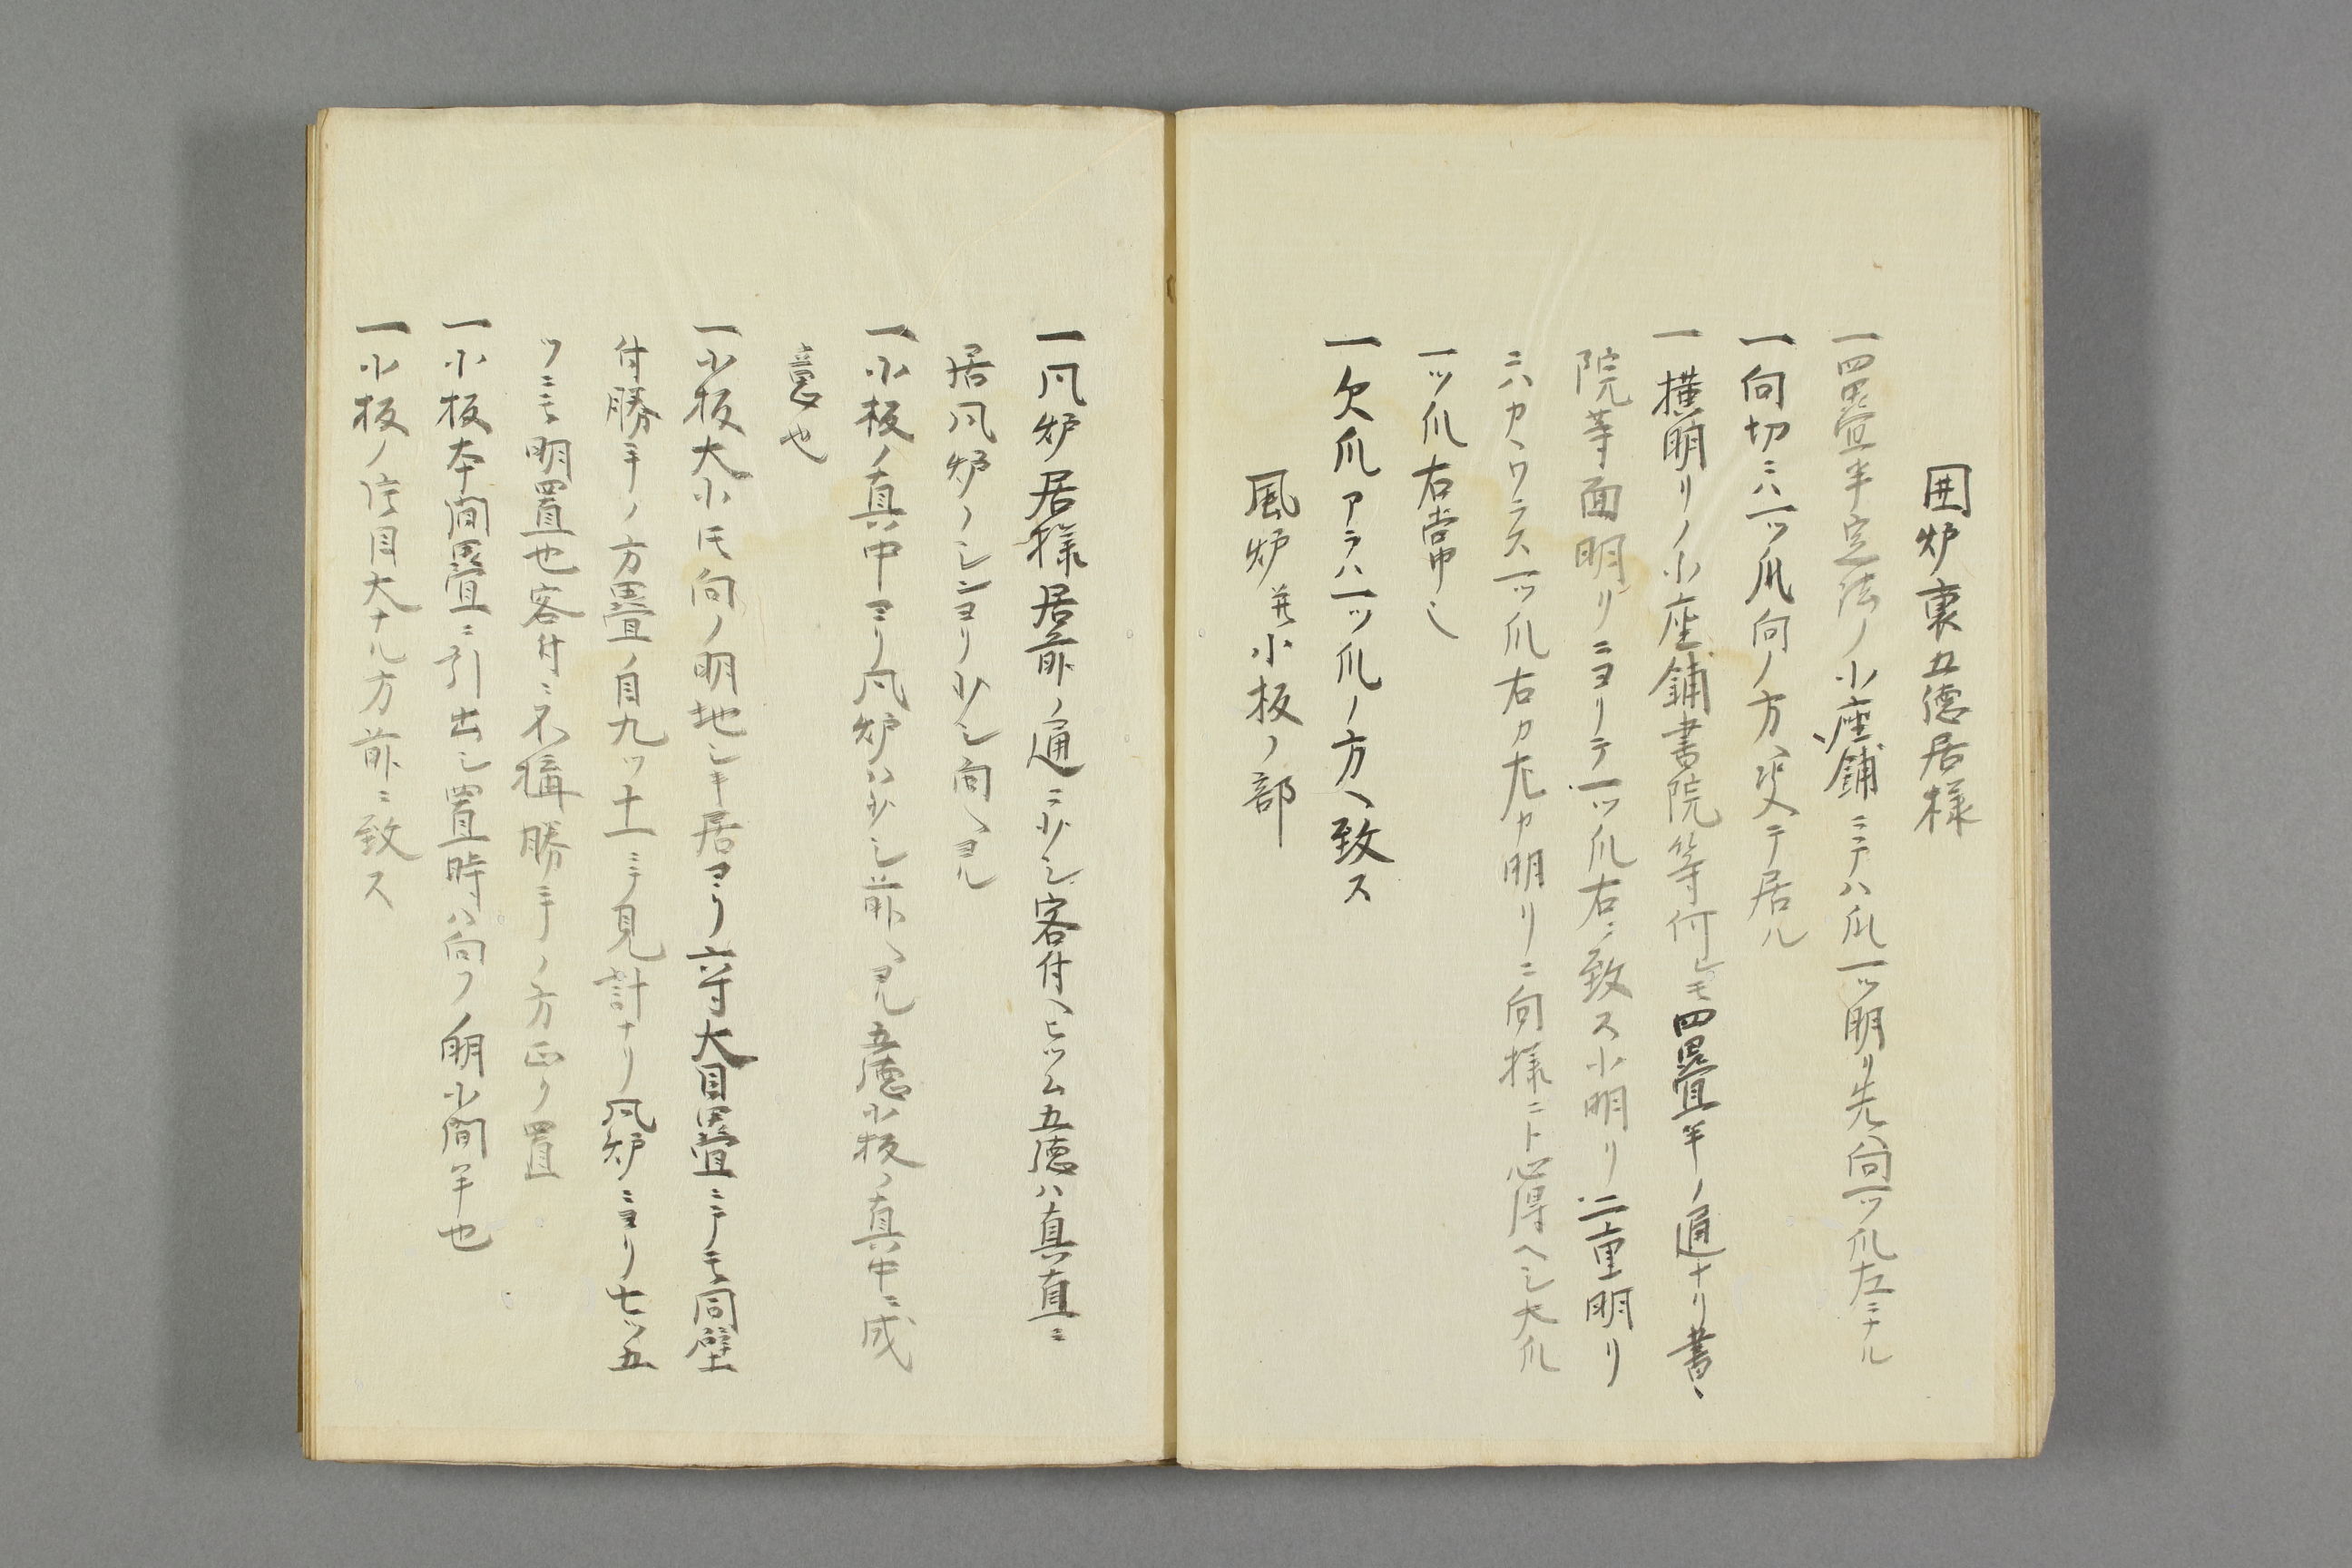 囲炉裏五徳居様
一四畳半定法ノ小座鋪ニテハ爪一ッ明リ先ヘ向一ッ爪左ニナル
一向切ニハ一ッ爪向ノ方ヘ変テ居ル
一横明リノ小座鋪書院等何レモ四畳半ノ通ナリ書
院等面明リニヨリテ一ッ爪右ニ致ス小明リ二重明リ
ニハカヽワラス一ッ爪右カ左カ明リニ向様ニト心得ヘシ大爪
一ッ爪右常申シ
一欠爪アラハ一ッ爪ノ方ヘ致ス
風炉并小板ノ部
一風炉居様居前ノ通ニ少シ客付ヘヒツム五徳ハ真直ニ
居風炉ノシンヨリ少シ向ヘヨル
一小板ノ真中ヨリ風炉ハ少シ前ヘヨル五徳小板ノ真中ニ成
意也
一小板大小トモ向ノ明地シキ居ヨリ六寸大目畳ニテモ同壁
付勝手ノ方畳ノ目九ッ十一ニテ見計ナリ風炉ニヨリ七ッ五
ツニモ明置也客付ニ不構勝手ノ方ヨリ置
一小板本間畳ニ引出シ置時ハ向フノ明小間半也
一小板ノ目大ナル方前ニ致ス